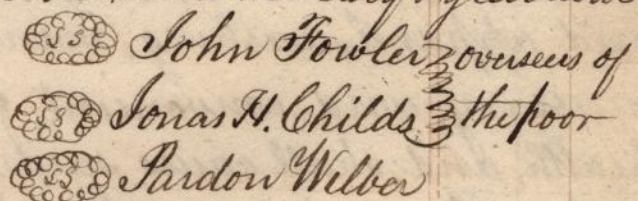 John Fowler overseers of
Jonas H. Childs the poor
Pardon Wilber